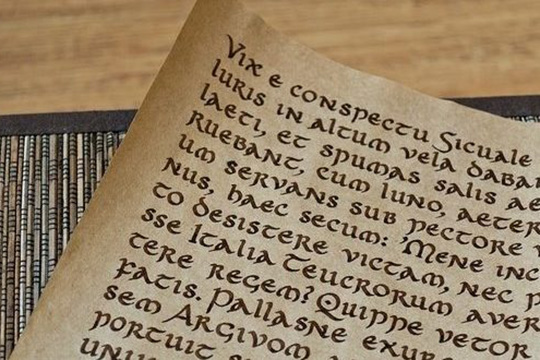 Vix e conspectu Siculae
luris in altum vela daban
laeti, et spumas salis ae
ruebant, cum Iuno, aeter
um servans sub pectore v
nus, haec secum: 'Mene inc
to desistere victam, nec p
sse Italia Teucrorum aver
tere regem? Quippe vetor
fatis. Pallasne exur
sem Argivom
portuit s
unius